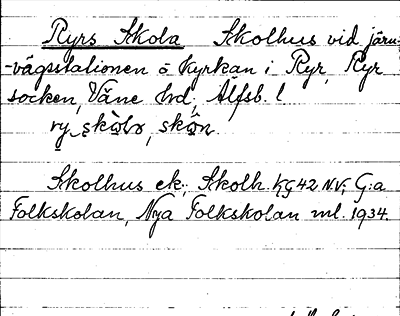 Ryrs Skola Skolhus vid järn-
-vägsstationen o kyrkan i Ryr, Ryr
socken, Väne hd, Älfsb. l
ry
Skolhus ek., Skolh. 42 NV; G:a
Folkskolan, Nya Folkskolan ml. 1934.